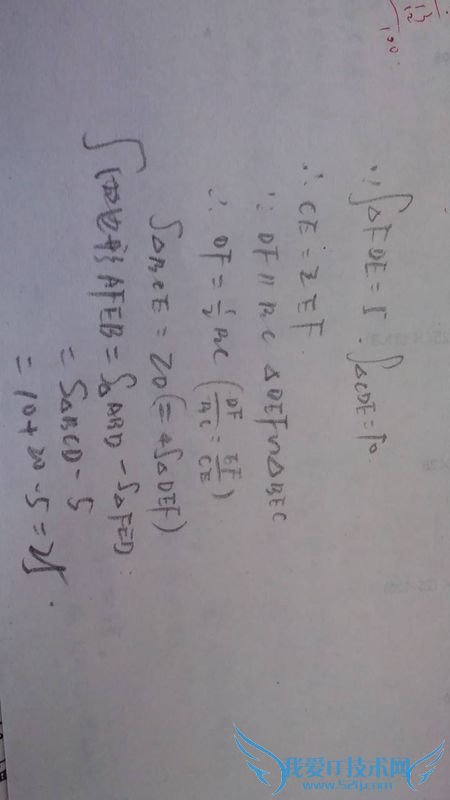 ∵ S△FDE=5 . S△CDE=10.
∴ CE=2EF
∵ DF∥BC △DEF∽△BEC
∴ DF=½BC (DF/BC=EF/CE)
S△BCE=20(=4S△DEF)
S四边形AFEB=S△ABD-S△FED
=S△BCD-5
=10+20-5=25.
我爱IT技术网
www.52ij.com